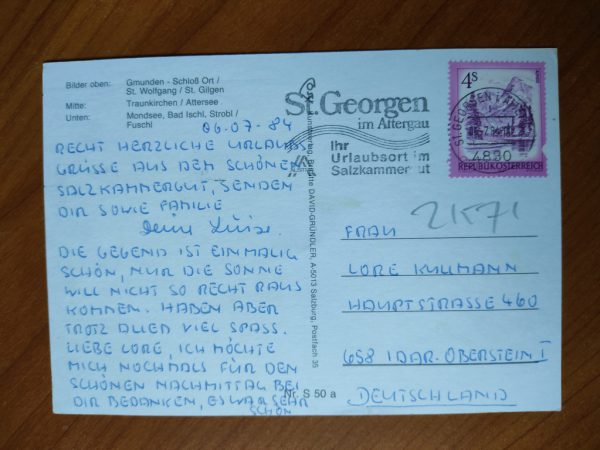 Bilder oben: Gmunden - Schloß Ort /
St. Wolfgang / St. Gilgen
Mitte: Traunkirchen / Attersee
Unten: Mondsee, Bad Ischl, Strobl /
Fuschl
06.07.84
RECHT HERZLICHE URLAUBS
GRÜSSE AUS DEM SCHÖNEN
SALZKAMMERGUT, SENDEN
DIR SOWIE FAMILIE
Deine Luise.
DIE GEGEND IST EINMALIG
SCHÖN, NUR DIE SONNE
WILL NICHT SO RECHT RAUS
KOMMEN. HABEN ABER
TROTZ ALLEN VIEL SPASS.
LIEBE LORE, ICH MÖCHTE
MICH NOCHMALS FÜR DEN
SCHÖNEN NACHMITTAG BEI
DIR BEDANKEN, ES WAR SEHR
SCHÖN
Brigitte DAVID-GRÜNDLER, A-5013 Salzburg, Postfach 35
Nr. S 50 a
St. Georgen
im Attergau
Ihr
Urlaubsort im
Salzkammergut
4 S
ST. GEORGEN I. A.
4880
REPUBLIK ÖSTERREICH
2K71
FRAU
LORE KULLMANN
HAUPTSTRASSE 460
658 IDAR-OBERSTEIN I
DEUTSCHLAND